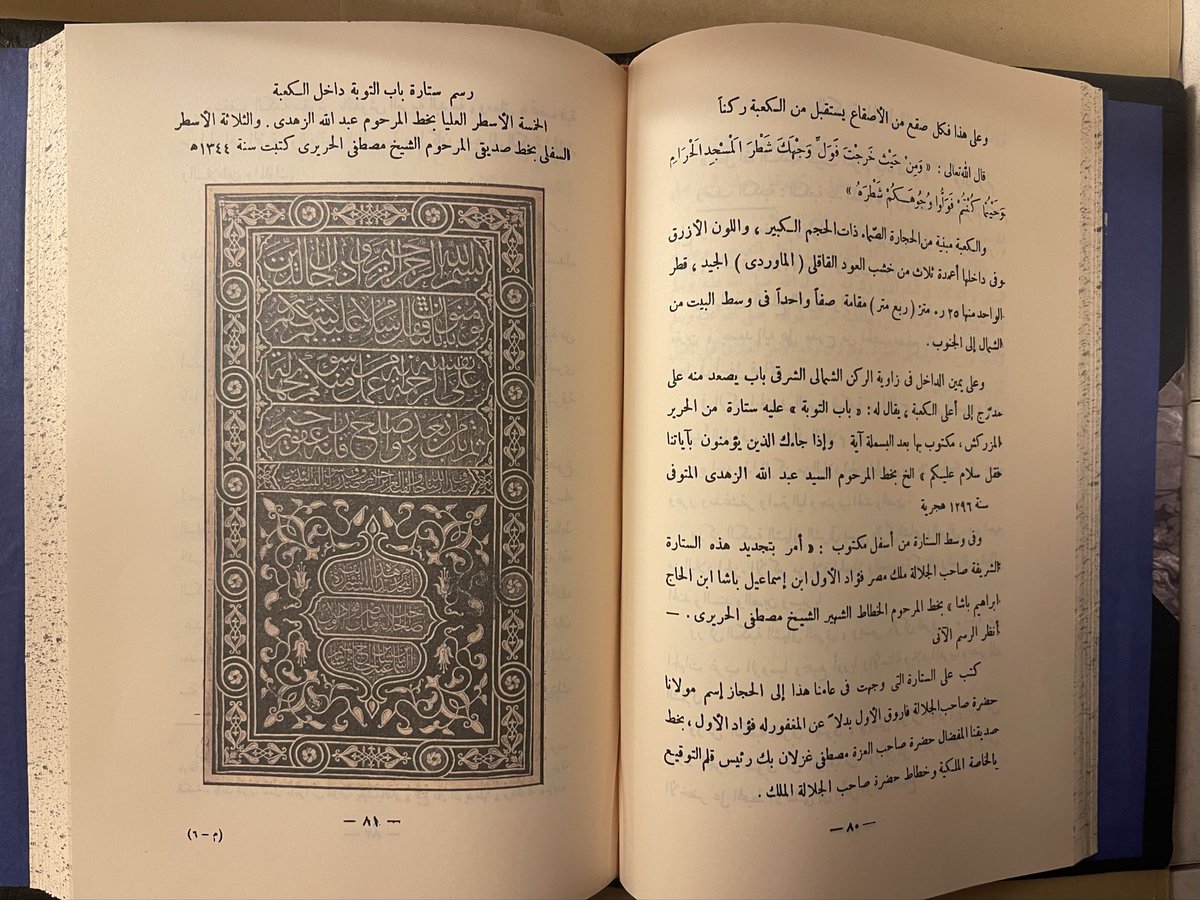 وعلى هذا فكل صقع من الأصقاع يستقبل من الكعبة ركناً
قال الله تعالى : « وَمِنْ حَيْثُ خَرَجْتَ فَوَلِّ وَجْهَكَ شَطْرَ الْمَسْجِدِ الْحَرَامِ
وَحَيْثُمَا كُنْتُمْ فَوَلُّوا وُجُوهَكُمْ شَطْرَهُ »
والكعبة مبنية من الحجارة الصماء ذات الحجم الكبير ، واللون الأزرق
وفى داخلها أعمدة ثلاث من خشب العود القاقلى ( الماوردى ) الجيد ، قطر
الواحد منها ٢٥ ر٠ متر ( ربع متر ) مقامة صفاً واحداً فى وسط البيت من
الشمال إلى الجنوب .
وعلى يمين الداخل فى زاوية الركن الشمالى الشرقى باب يصعد منه على
مدرج إلى أعلى الكعبة ، يقال له : « باب التوبة » عليه ستارة من الحرير
المزركش ، مكتوب بها بعد البسملة آية وإذا جاءك الذين يؤمنون بآياتنا
فقل سلام عليكم » الخ بخط المرحوم السيد عبد الله الزهدى المتوفى
سنة ١٢٩٦ هجرية
وفى وسط الستارة من أسفل مكتوب : « أمر بتجديد هذه الستارة
الشريفة صاحب الجلالة ملك مصر فؤاد الأول ابن إسماعيل باشا ابن الحاج
ابراهيم باشا » بخط المرحوم الخطاط الشهير الشيخ مصطفى الحريرى . —
أنظر الرسم الآتى
كتب على الستارة التى وجهت فى عامنا هذا إلى الحجاز إسم مولانا
حضرة صاحب الجلالة فاروق الأول بدلاً عن المغفور له فؤاد الأول ، بخط
صديقنا المفضال حضرة صاحب العزة مصطفى غزلان بك رئيس قلم التوقيع
بالخاصة الملكية وخطاط حضرة صاحب الجلالة الملك .
— ٨٠ —
رسم ستارة باب التوبة داخل الكعبة
الخمسة الأسطر العليا بخط المرحوم عبد الله الزهدى . والثلاثة الأسطر
السفلى بخط صديقى المرحوم الشيخ مصطفى الحريرى كتبت سنة ١٣٤٤ ه
بسم الله الرحمن الرحيم وإذا جاءك الذين
يؤمنون بآياتنا فقل سلام عليكم كتب ربكم
على نفسه الرحمة أنه من عمل منكم سوءا بجهالة
ثم تاب من بعده وأصلح فأنه غفور رحيم
أمر بتجديد هذه الستارة الشريفة
— ٨١ —
(م – ٦)